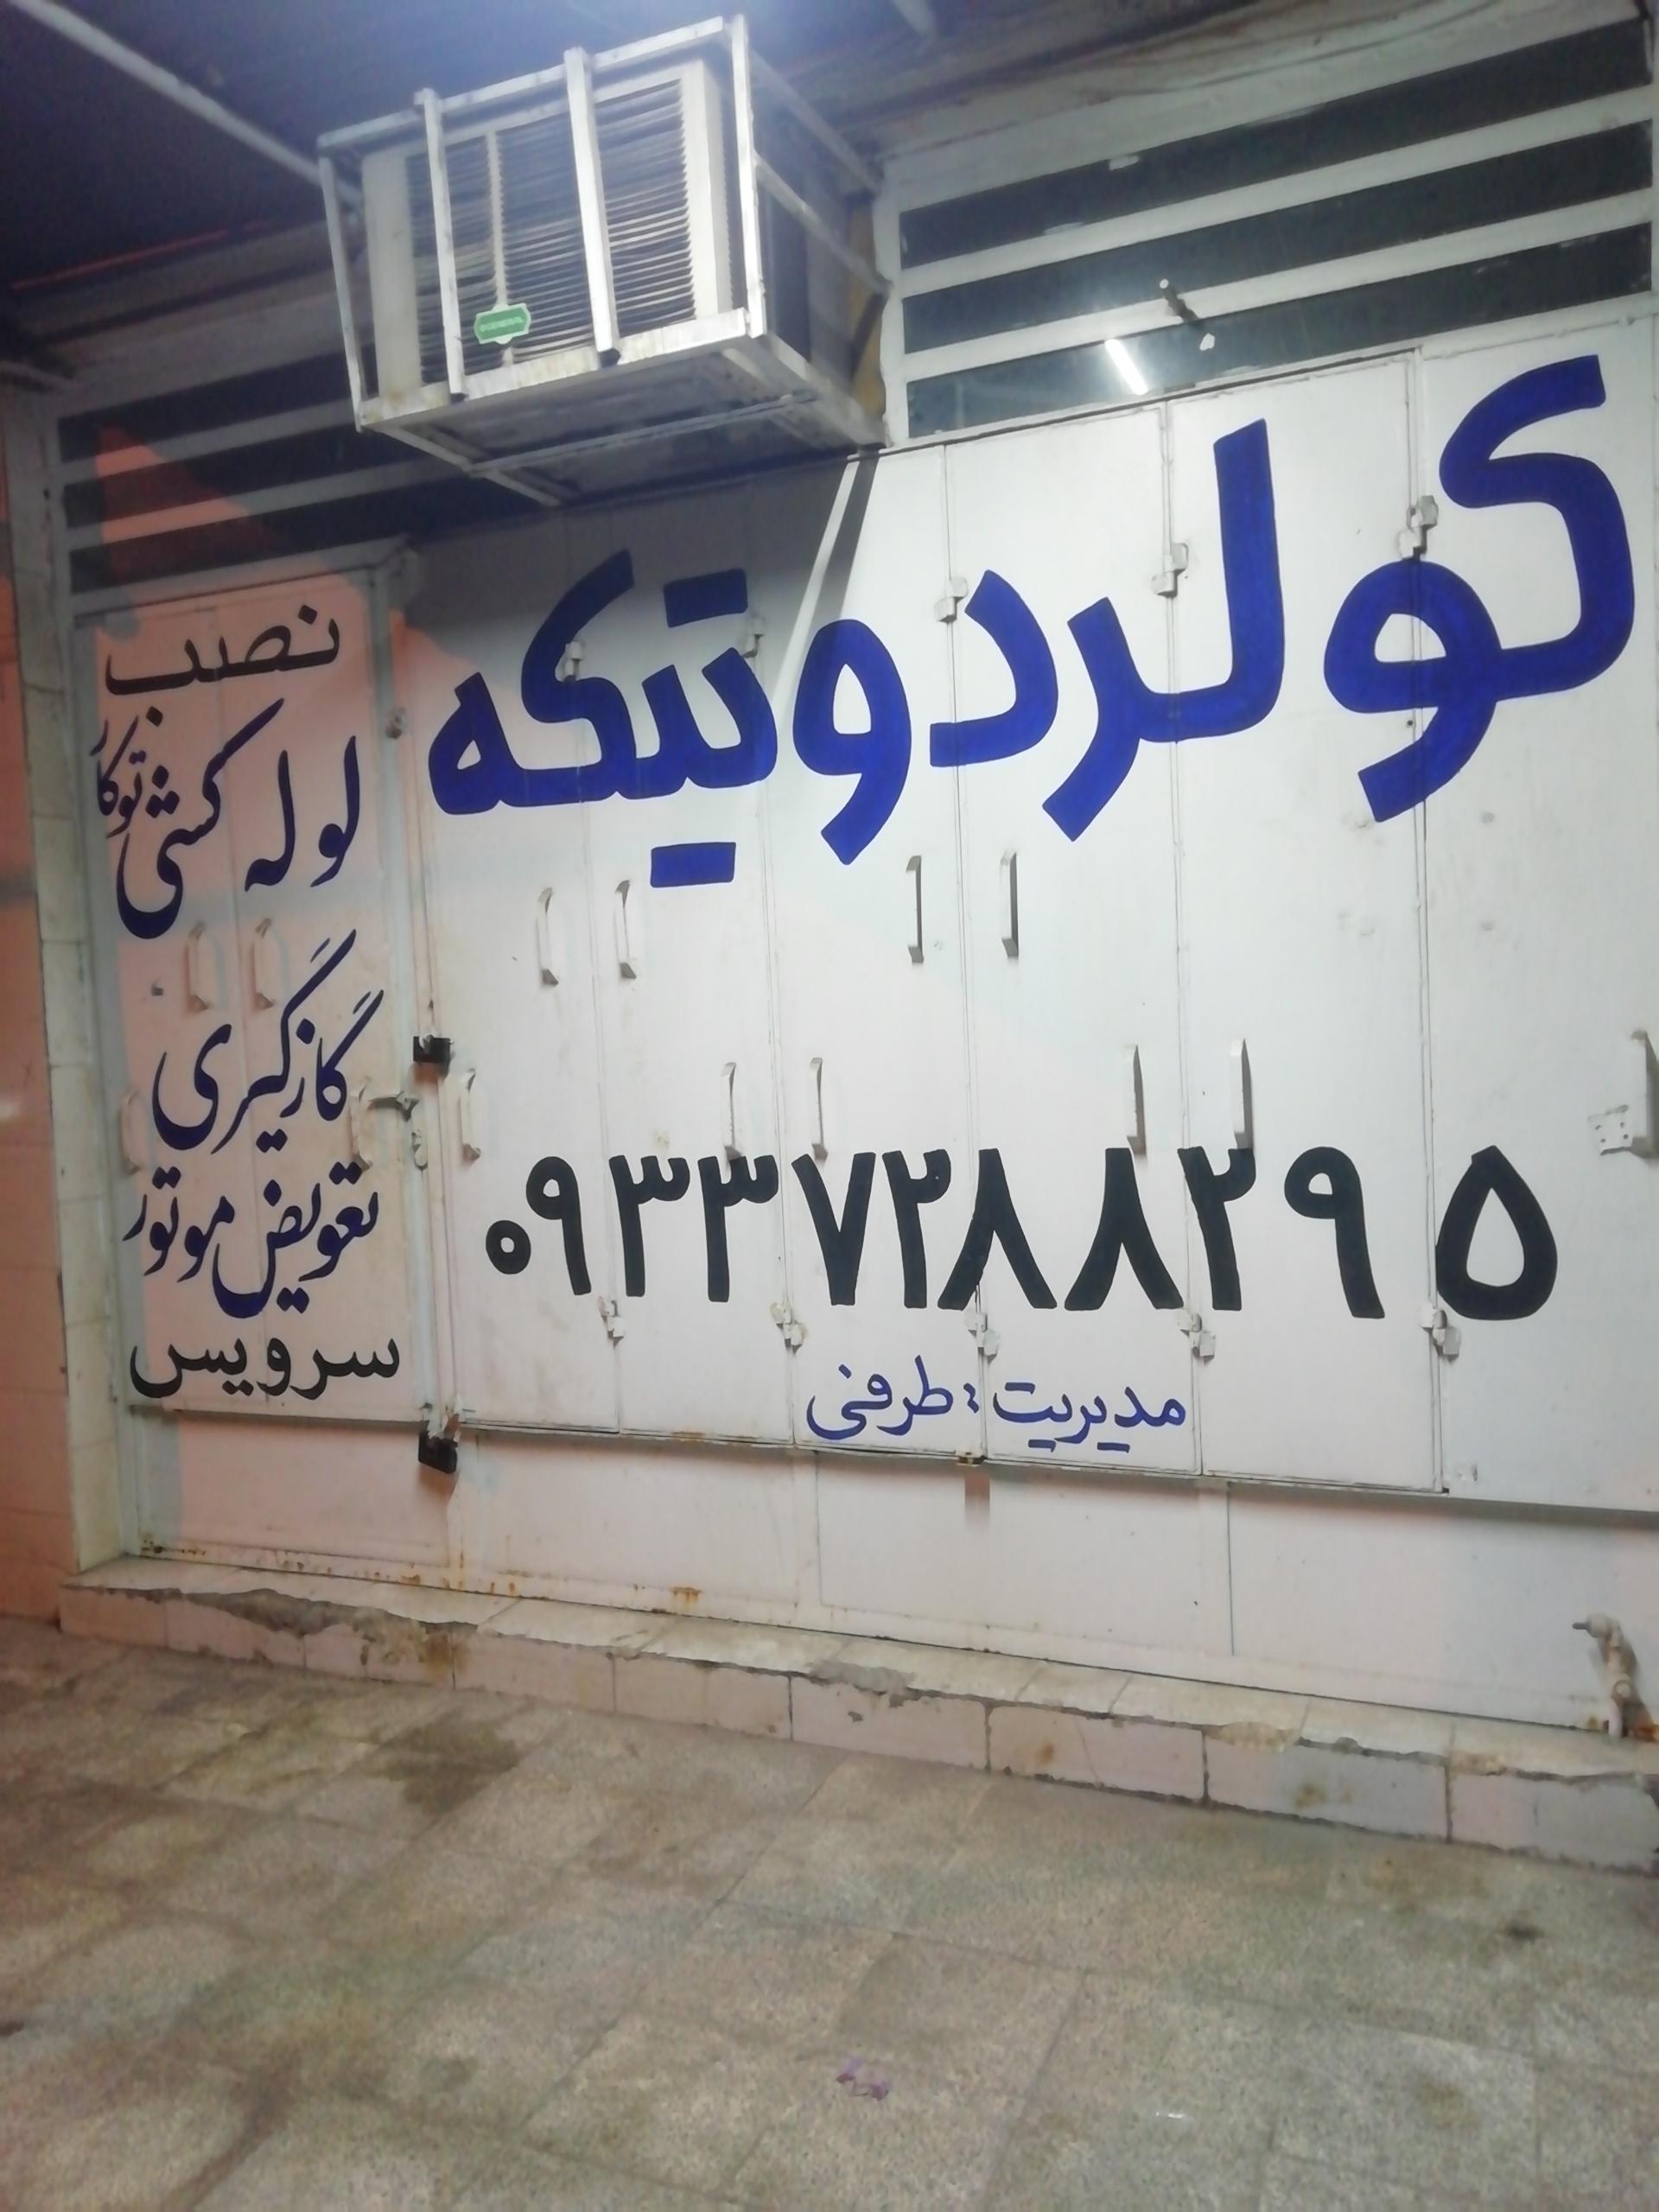 OGENERAL
کولر دو تیکه
۰۹۳۳۷۲۸۸۲۹۵
مدیریت : طرفی
نصب
لوله کشی توکار
گازگیری
تعویض موتور
سرویس